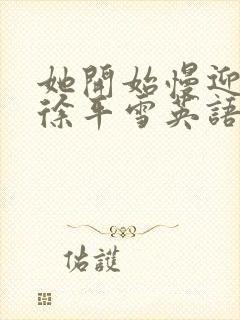 她開始慢迎
徐平雪英語
佑護